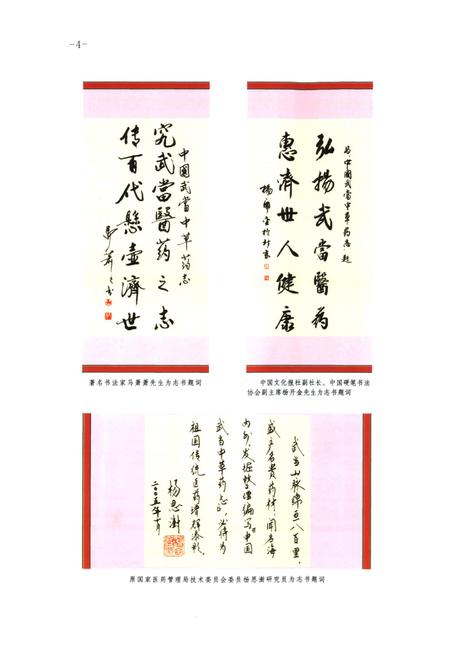 -4-
中国武当中草药志
究武當醫药之志
传百代懸壶濟世
马萧萧书
著名书法家马萧萧先生为志书题词
为中国武当中草药志题
弘揚武當醫药
惠濟世人健康
杨开金於北京
中国文化报社副社长、中国硬笔书法
协会副主席杨开金先生为志书题词
武当山脉绵亘八百里，
盛产名贵药材，闻名海
内外，发掘整理编写《中国
武当中草药志》，必将为
祖国传统医药增辉添彩。
杨思澍
二〇〇五年十月
原国家医药管理局技术委员会委员杨思澍研究员为志书题词